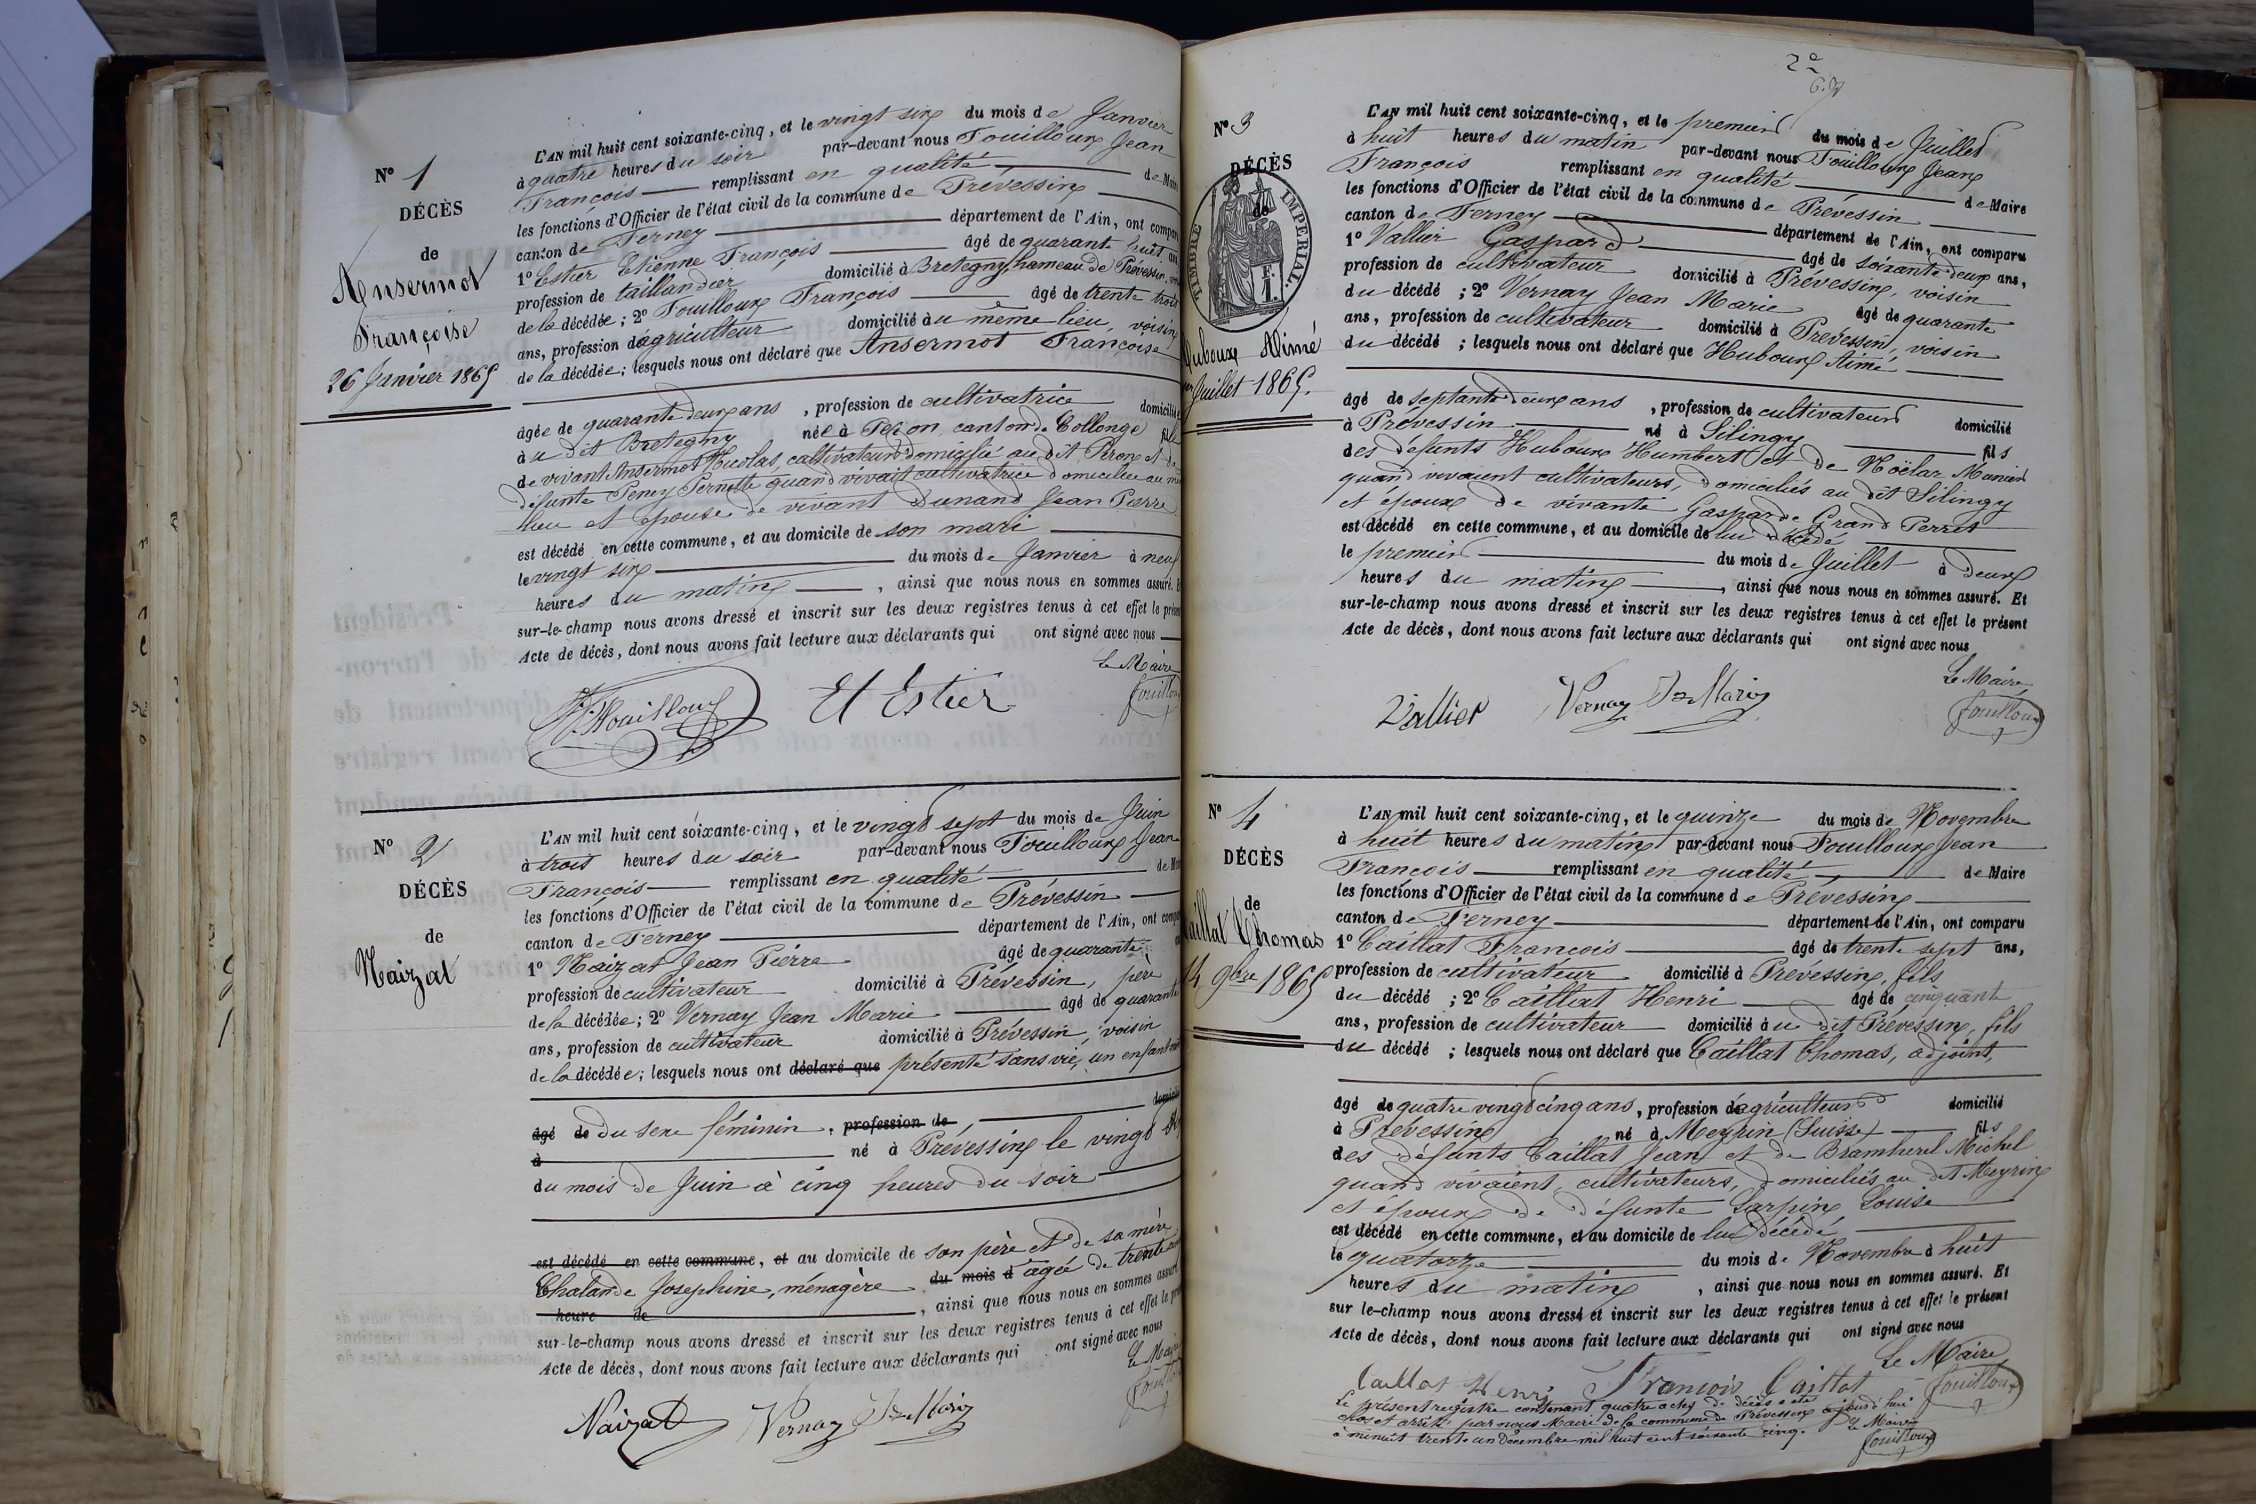 N° 1
DÉCÈS
de
Ansermot
Françoise
26 Janvier 1865
L'AN mil huit cent soixante-cinq, et le vingt six du mois de Janvier
à quatre heures du soir par-devant nous Fouilloux Jean
François remplissant en qualité de Maire
les fonctions d'Officier de l'état civil de la commune de Prévessin
canton de Ferney département de l'Ain, ont compar
1° Estier Etienne François âgé de quarant huit an
profession de taillandier domicilié à Bretegny, hameau de Prévessin,
de la décédée; 2° Fouilloux François âgé de trente trois
ans, profession d'agriculteur domicilié au même lieu, voisin
de la décédée; lesquels nous ont déclaré que Ansermot Françoise
âgée de quarante deux ans, profession de cultivatrice domicilié
au dit Bretegny née à Péron canton de Collonge fille
de vivant Ansermot Nicolas, cultivateur domicilié au dit Péron et de
défunte Peney Pernette quand vivait cultivatrice domiciliée au
lieu et épouse de vivant Dunand Jean Pierre
est décédé en cette commune, et au domicile de son mari
le vingt six du mois de Janvier à neuf
heures du matin, ainsi que nous nous en sommes assuré. Et
sur-le-champ nous avons dressé et inscrit sur les deux registres tenus à cet effet le présent
Acte de décès, dont nous avons fait lecture aux déclarants qui ont signé avec nous
Le Maire
Fouilloux Et Estier Fouilloux
N° 2
DÉCÈS
de
Naizat
L'AN mil huit cent soixante-cinq, et le vingt sept du mois de Juin
à trois heures du soir par-devant nous Fouilloux Jean
François remplissant en qualité de Mai
les fonctions d'Officier de l'état civil de la commune de Prévessin
canton de Ferney département de l'Ain, ont compa
1° Naizat Jean Pierre âgé de quarante
profession de cultivateur domicilié à Prévessin, père
de la décédée; 2° Vernay Jean Marie âgé de quarante
ans, profession de cultivateur domicilié à Prévessin, voisin
de la décédée; lesquels nous ont déclaré que présenté sans vie, un enfant
âgé de du sexe féminin, profession de domicilié
à né à Prévessin le vingt
du mois de Juin à cinq heures du soir
est décédé en cette commune, et au domicile de son père et de sa mère
Chalande Josephine, ménagère du mois d âgée de trente
heure de, ainsi que nous nous en sommes assuré
sur-le-champ nous avons dressé et inscrit sur les deux registres tenus à cet effet le pré
Acte de décès, dont nous avons fait lecture aux déclarants qui ont signé avec nous
Le Maire
Naizat Vernay Jn Marie Fouilloux
2e
N° 3
DÉCÈS
de
TIMBRE IMPERIAL.
1 F.
Huboux Aimé
Juillet 1865.
L'AN mil huit cent soixante-cinq, et le premier du mois de Juillet
à huit heures du matin par-devant nous Fouilloux Jean
François remplissant en qualité de Maire
les fonctions d'Officier de l'état civil de la commune de Prévessin
canton de Ferney département de l'Ain, ont comparu
1° Vallier Gaspard âgé de soixante deux ans,
profession de cultivateur domicilié à Prévessin, voisin
du décédé; 2° Vernay Jean Marie âgé de quarante
ans, profession de cultivateur domicilié à Prévessin, voisin
du décédé; lesquels nous ont déclaré que Huboux Aimé
âgé de septante deux ans, profession de cultivateur domicilié
à Prévessin né à Silingy fils
des défunts Huboux Humbert et de Noëlar Manied
quand vivaient cultivateurs, domiciliés au dit Silingy
et époux de vivante Gasparde Grand Perret
est décédé en cette commune, et au domicile de lui décédé
le premier du mois de Juillet à deux
heures du matin, ainsi que nous nous en sommes assuré. Et
sur-le-champ nous avons dressé et inscrit sur les deux registres tenus à cet effet le présent
Acte de décès, dont nous avons fait lecture aux déclarants qui ont signé avec nous
Le Maire
Vallier Vernay Jn Marie Fouilloux
N° 4
DÉCÈS
de
Caillat Thomas
14 9bre 1865
L'AN mil huit cent soixante-cinq, et le quinze du mois de Novembre
à huit heures du matin par-devant nous Fouilloux Jean
François remplissant en qualité de Maire
les fonctions d'Officier de l'état civil de la commune de Prévessin
canton de Ferney département de l'Ain, ont comparu
1° Caillat François âgé de trente sept ans,
profession de cultivateur domicilié à Prévessin, fils
du décédé; 2° Caillat Henri âgé de cinquante
ans, profession de cultivateur domicilié au dit Prévessin, fils
du décédé; lesquels nous ont déclaré que Caillat Thomas, adjoint,
âgé de quatre vingt cinq ans, profession d'agriculteur domicilié
à Prévessin né à Meyrin (Suisse) fils
des défunts Caillat Jean et de Bramherel Michel
quand vivaient, cultivateurs, domiciliés au dit Meyrin
et époux de défunte Larpin Louise
est décédé en cette commune, et au domicile de lui décédé
le quatorze du mois de Novembre à huit
heures du matin, ainsi que nous nous en sommes assuré. Et
sur le-champ nous avons dressé et inscrit sur les deux registres tenus à cet effet le présent
Acte de décès, dont nous avons fait lecture aux déclarants qui ont signé avec nous
Le Maire
Caillat Henri François Caillat Fouilloux
Le présent registre contenant quatre actes de décès a été
clos et arrêté par nous Maire de la commune de Prévessin aujourd'hui
à minuit trente un Décembre mil huit cent soixante cinq. Le Maire
Fouilloux